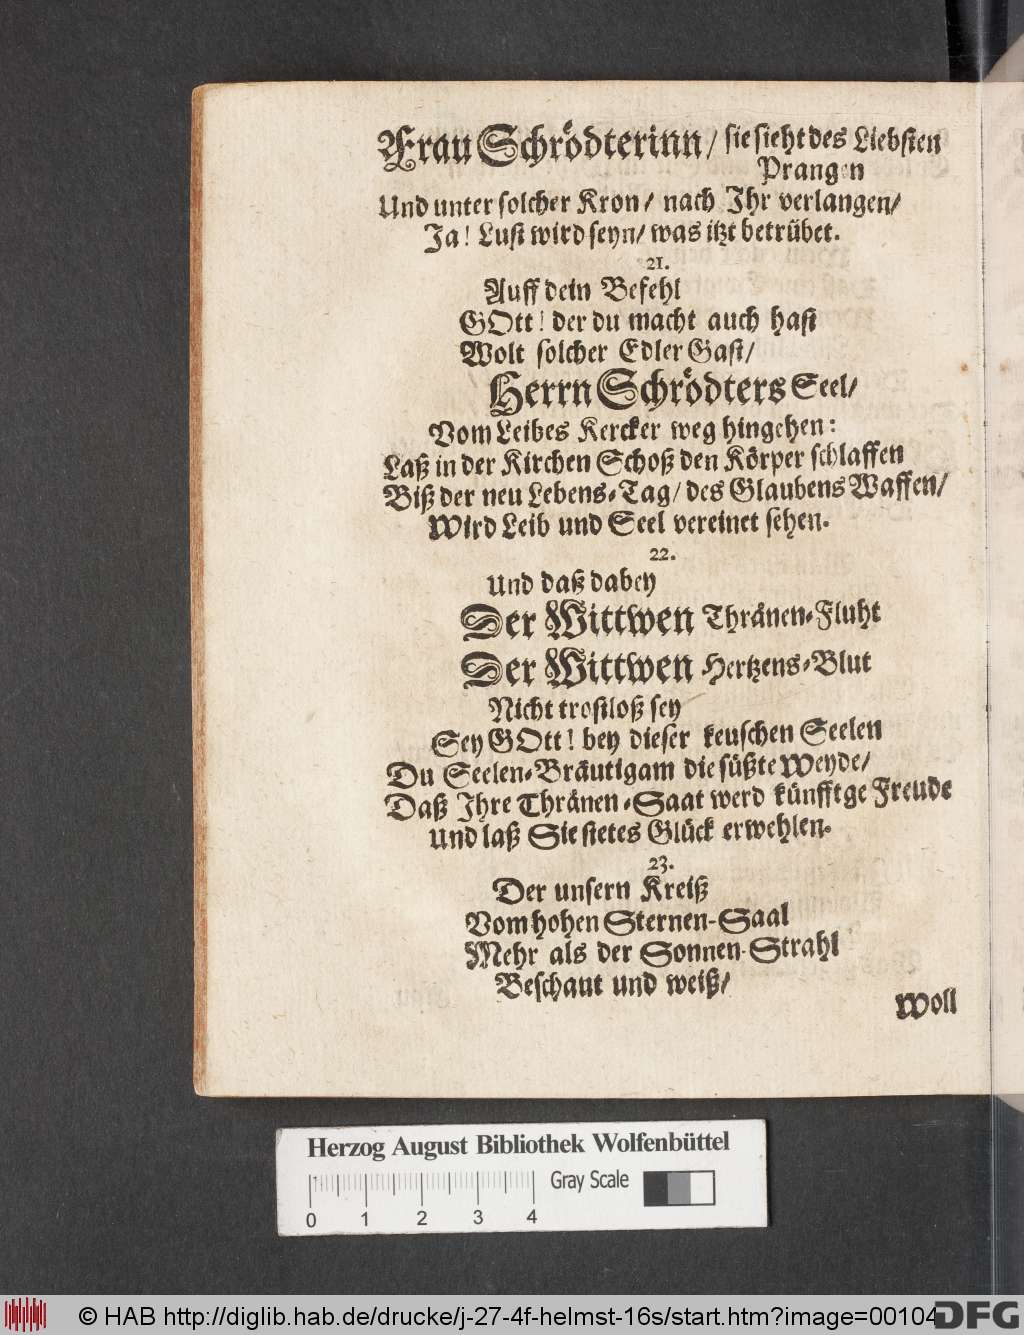 Frau Schrödterinn/ sie sieht des Liebsten
Prangen
Und unter solcher Kron/ nach Ihr verlangen/
Ja! Lust wird seyn/ was itzt betrübet.
21.
Auff dein Befehl
GOtt! der du macht auch hast
Wolt solcher Edler Gast/
Herrn Schrödters Seel/
Vom Leibes Kercker weg hingehen:
Laß in der Kirchen Schoß den Körper schlaffen
Biß der neu Lebens-Tag/ des Glaubens Waffen/
Wird Leib und Seel vereinet sehen.
22.
Und daß dabey
Der Wittwen Thränen-Fluht
Der Wittwen Hertzens-Blut
Nicht trostloß sey
Sey GOtt! bey dieser keuschen Seelen
Du Seelen-Bräutigam die süßte Weyde/
Daß Ihre Thränen-Saat werd künfftge Freude
Und laß Sie stetes Glück erwehlen.
23.
Der unsern Kreiß
Vom hohen Sternen-Saal
Mehr als der Sonnen-Strahl
Beschaut und weiß/
Woll
Herzog August Bibliothek Wolfenbüttel
Gray Scale
0 1 2 3 4
© HAB http://diglib.hab.de/drucke/j-27-4f-helmst-16s/start.htm?image=00104
DFG